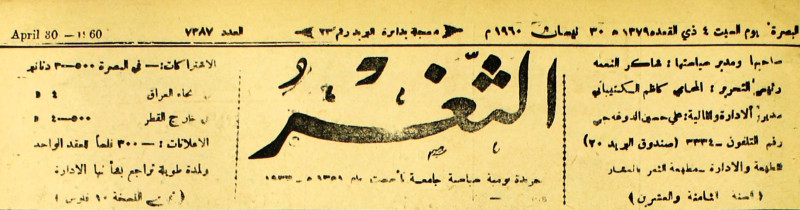 البصرة يوم السبت ٤ ذي القعدة ١٣٧٩ ه ٣٠ نيسان ١٩٦٠ م
مسجلة بدائرة البريد رقم ٢٣
العدد ٧٣٨٧
April 30 — 1960
صاحبها ومدير سياستها : شاكر النعمة
رئيس التحرير : المحامي كاظم
مدير الادارة والمالية : علي حسين
رقم التلفون ــ ٣٣٣٤ (صندوق البريد ٢٠)
الطبعة والادارة ــ مطبعة الثغر بالعشار
( السنة الثامنة والعشرين )
الثَّغْرُ
جريدة يومية سياسية جامعة تأسست عام
الاشتراكات :ــ في البصرة ٥٠٠ــ٣ دنانير
انحاء العراق ٤ »
خارج القطر ٥٠٠ــ٤ »
الاعلانات : ــ ٣٠٠ فلساً للعقد الواحد
ولمدة طويلة تراجع بها الادارة
( النسخة ١٠ فلوس )